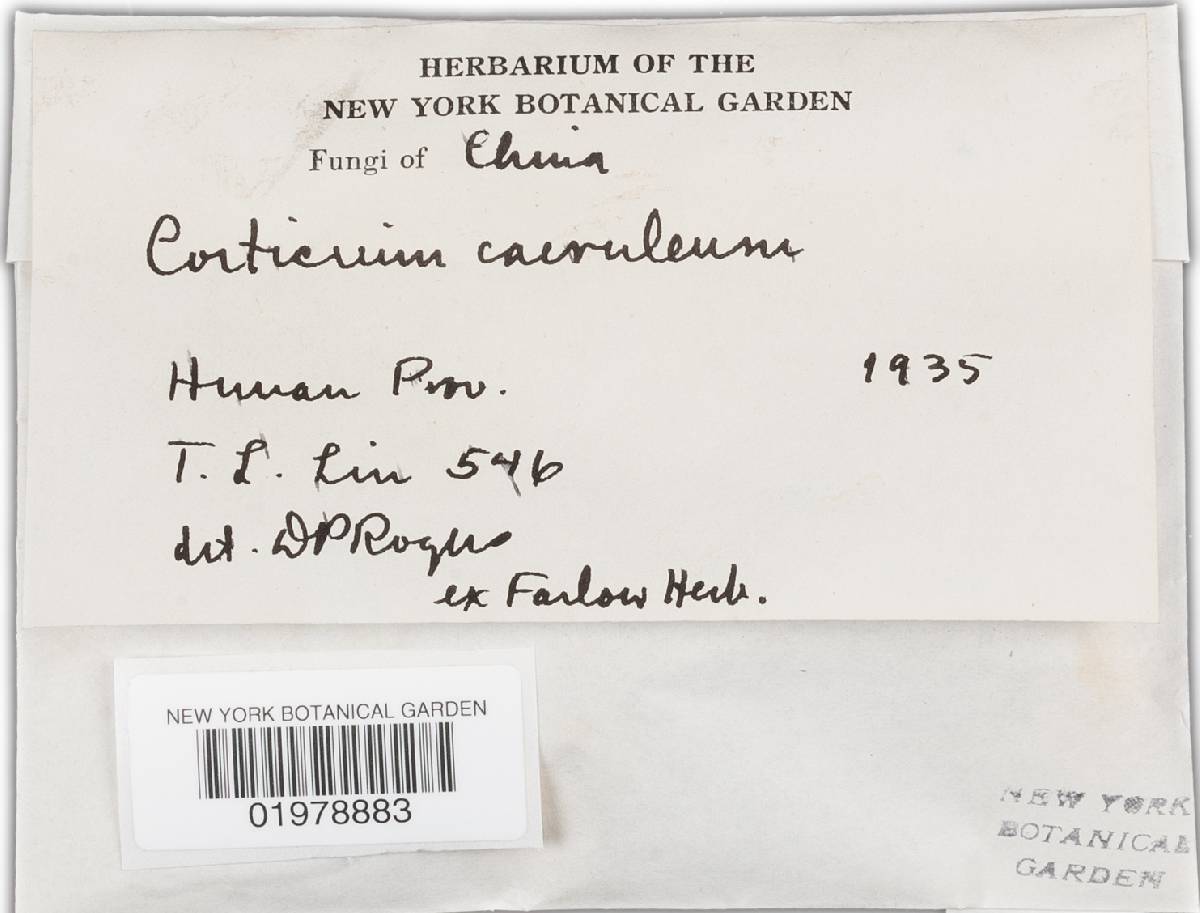 HERBARIUM OF THE
NEW YORK BOTANICAL GARDEN
Fungi of China
Corticium caeruleum
Hunan Prov. 1935
T. L. Lin 546
det. DPRogers
ex Farlow Herb.
NEW YORK BOTANICAL GARDEN
01978883
NEW YORK
BOTANICAL
GARDEN